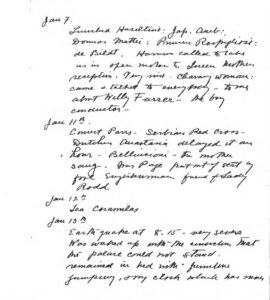 Jan 7.
Lunched Haseltine: Jap. Amb:
Donnas Mattei: Princess Raspigliosi:
de Bildt. Hannis called to take
us in open motor to Queen Mothers
reception. Very nice - Charming woman:
came & talked to everybody - to me
about Willy Ferrer - the boy
conductor -
Jan 11th
Court Paris. Serbian Red Cross.
Duchess Anastasia delayed it an
hour - Bellincioni - the mother
sang. Mrs Page part of it by
Englishwoman friend of Lady
Rodd
Jan 12th
Tea Caramelas
Jan 13th
Earthquake at 8.15 - very severe
Was waked up with the conviction that
the palace could not stand.
remained in bed with furniture
jumping, & my clock which has never